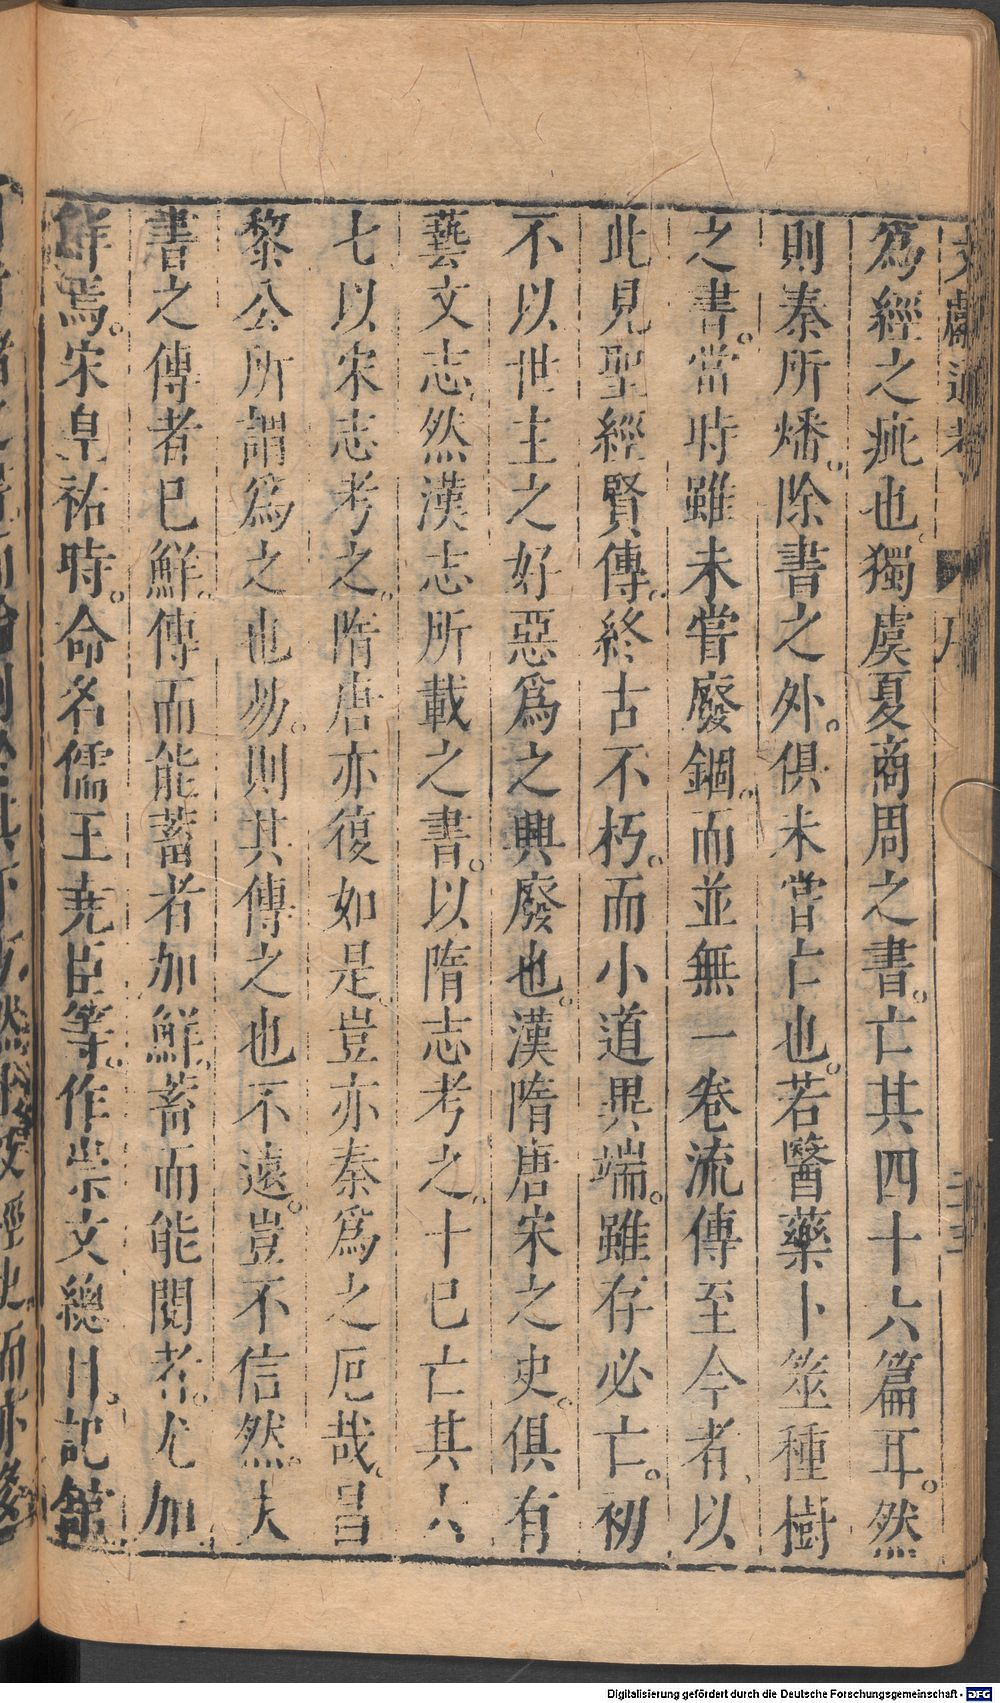 文獻通考
序
為經之疵也。獨虞夏商周之書。亡其四十六篇耳。然
則秦所燔。除書之外。俱未嘗亡也。若醫藥卜筮種樹
之書。當時雖未嘗廢錮。而並無一卷流傳至今者、以
此見聖經賢傳。終古不朽。而小道異端。雖存必亡。初
不以世主之好惡爲之興廢也。漢隋唐宋之史。俱有
藝文志、然漢志所載之書。以隋志考之。十已亡其六
七以宋志考之。隋唐亦復如是。豈亦秦爲之厄哉。昌
黎公所謂爲之也易。則其傳之也不遠。豈不信然。夫
書之傳者已鮮。傳而能蓄者加鮮。蓄而能閱者。尤加
鮮焉。宋皇祐時。命名儒王堯臣等。作崇文總目。記館
Digitalisierung gefördert durch die Deutsche Forschungsgemeinschaft - DFG